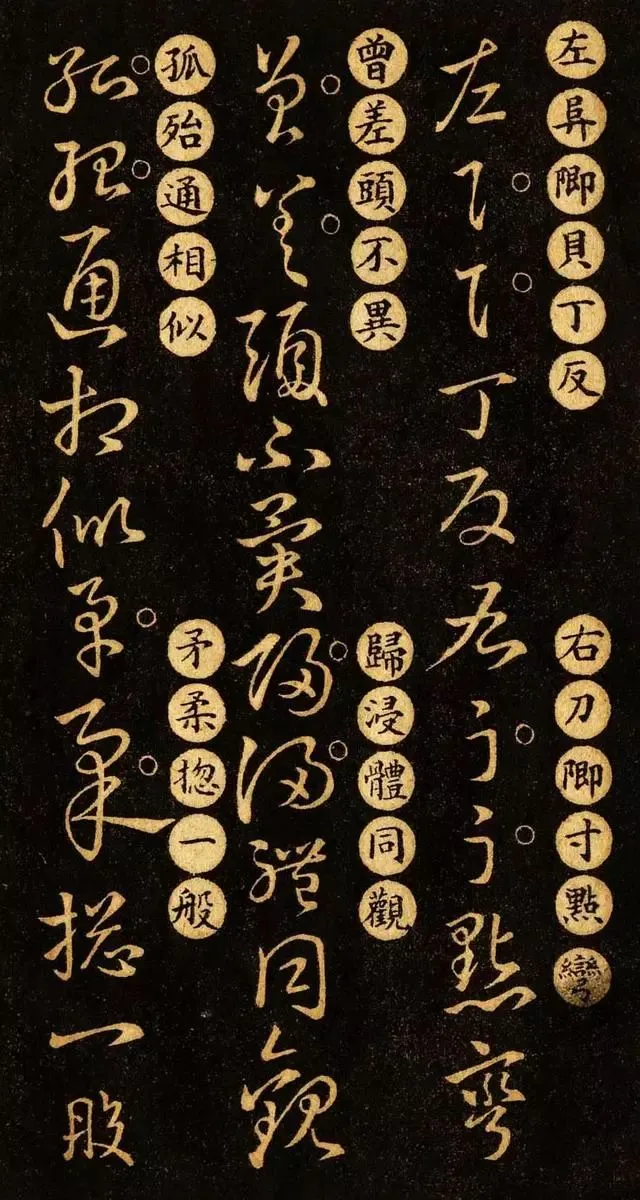 左阜卽貝丁反
右刀卽寸點彎
左阜貝丁反右刀寸點彎
曾差頭不異
歸浸體同觀
曾差頭不異歸浸體同觀
孤殆通相似
矛柔揔一般
孤殆通相似矛柔揔一般